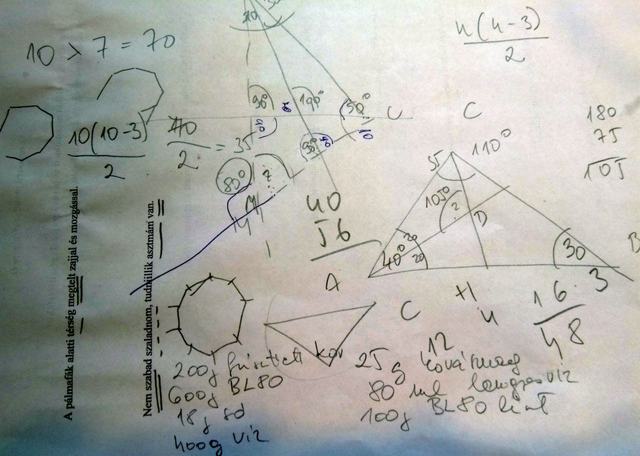 10 > 7 = 70
n(n-3)
2
10(10-3)
2
70
2
= 35
90°
190°
50°
U
80°
?
40
56
C
110°
55
105°
?
D
40°
20
20
30
B
A
180
75
105
16.3
48
C
+1
n
12
A pálmafák alatti térség megtelt zajjal és mozgással.
Nem szabad szaladnom, tudniillik asztmám van.
200g frissített kov
600g BL80
18g só
400g víz
25g kovászmag
80 ml langyos víz
100g BL80 liszt